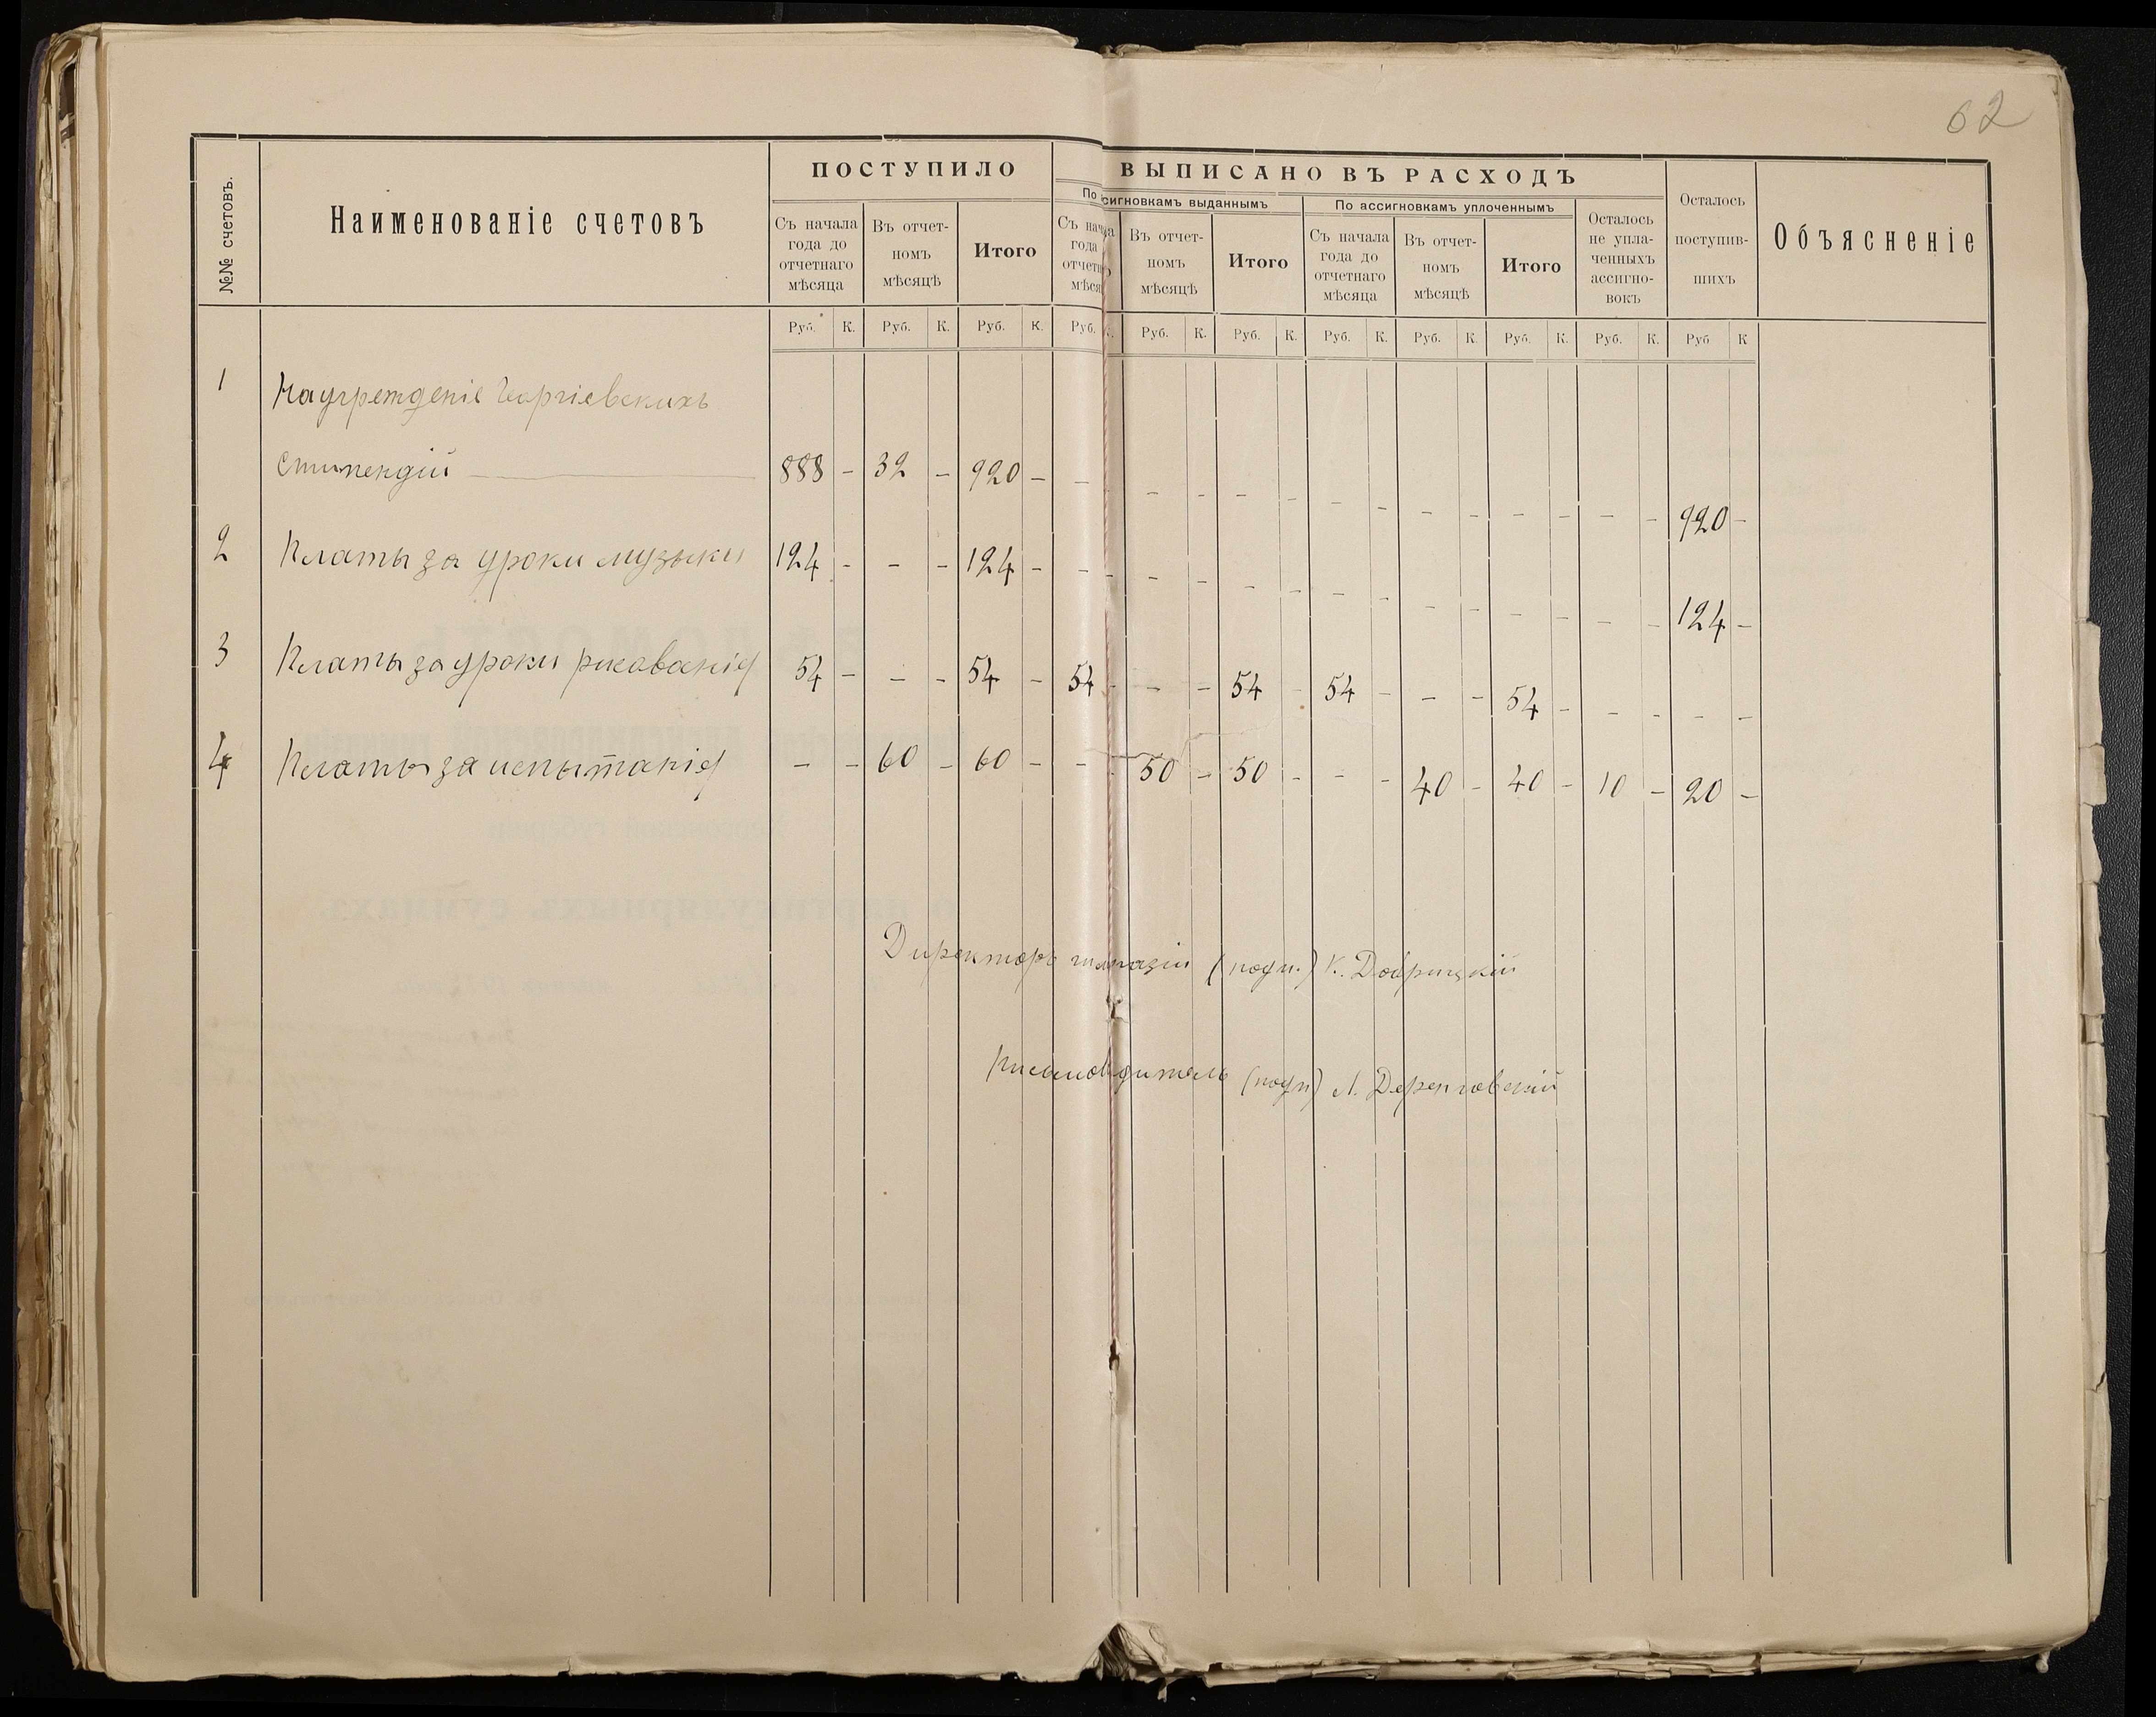 62
№№ счетовъ.
Наименованіе счетовъ
ПОСТУПИЛО
ВЫПИСАНО ВЪ РАСХОДЪ
Осталось
поступив-
шихъ
Объясненіе
По
ссигновкамъ выданнымъ
По ассигновкамъ уплоченнымъ
Осталось
не упла-
ченныхъ
ассигно-
вокъ
Съ начала
года до
отчетнаго
мѣсяца
Въ отчет-
номъ
мѣсяцѣ
Итого
Съ нача
года
отчетн
мѣся
Въ отчет-
номъ
мѣсяцѣ
Итого
Съ начала
года до
отчетнаго
мѣсяца
Въ отчет-
номъ
мѣсяцѣ
Итого
Руб. К. Руб. К. Руб. К. Руб. К. Руб. К. Руб. К. Руб. К. Руб. К. Руб. К. Руб. К. Руб К
1 На учрежденіе Георгіевскихъ
стипендій — 888 - 32 - 920 - - - - - - - - - - - - - - - 920 -
2 Платы за уроки музыки 124 - - - 124 - - - - - - - - - - - - - - - 124 -
3 Платы за уроки рисованія 54 - - - 54 - 54 - - - 54 - 54 - - - 54 - - - - -
4 Платы за испытанія - - 60 - 60 - - - 50 - 50 - - - 40 - 40 - 10 - 20 -
Директоръ гимназіи (подп.) К. Добрицкій
Письмоводитель (подп) Л.